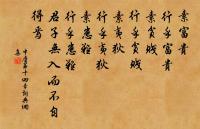 素富貴
行乎富貴
素貧賤
行乎貧賤
素夷狄
行乎夷狄
素患難
行乎患難
君子無入而不自
得焉
中庸第十四章詞典網
集